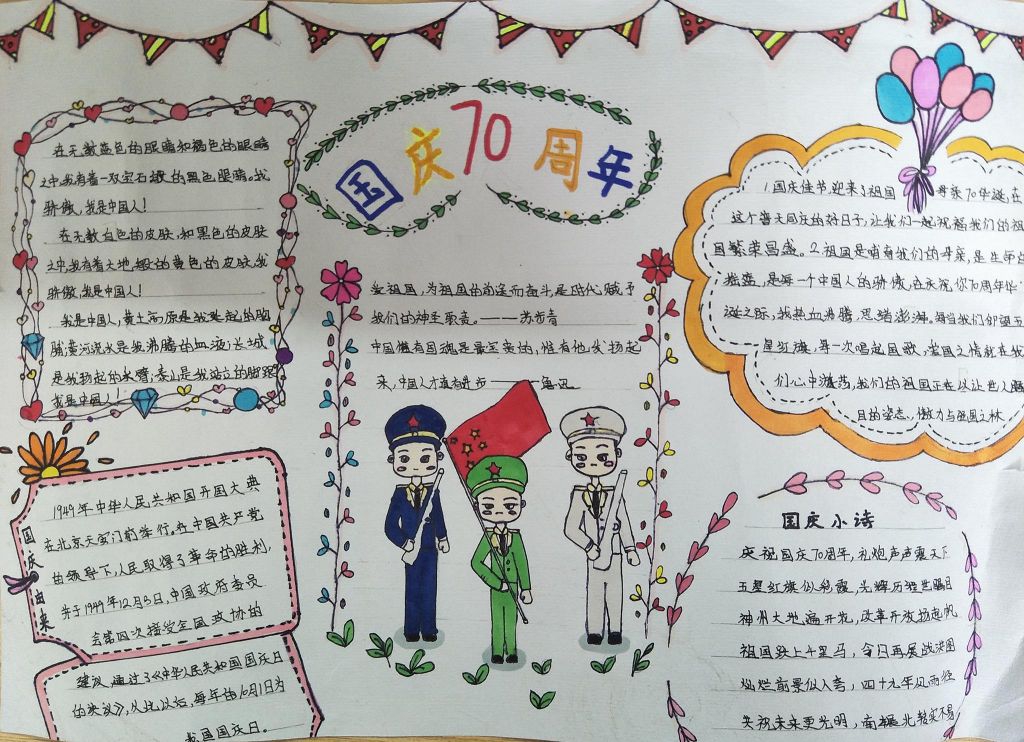 国庆70周年
在无数蓝色的眼睛和褐色的眼睛
之中,我有着一双宝石般的黑色眼睛,我
骄傲,我是中国人!
在无数白色的皮肤,和黑色的皮肤
之中,我有着大地般的黄色的皮肤,我
骄傲,我是中国人!
我是中国人,黄土高原是我挺起的胸
脯,黄河流水是我沸腾的血液;长城
是我扬起的手臂;泰山是我站立的脚跟
我是中国人!
国庆由来
1949年中华人民共和国开国大典
在北京天安门前举行。在中国共产党
的领导下,人民取得了革命的胜利,
并于1949年12月3日,中国政府委员
会第四次接受全国政协的
建议,通过了《中华人民共和国国庆日
的决议》,从此以后,每年的10月1日为
我国国庆日。
爱祖国,为祖国的前途而奋斗,是时代赋予
我们的神圣职责。——苏步青
中国惟有国魂是最宝贵的,惟有他发扬起
来,中国人才有真进步——鲁迅
1.国庆佳节,迎来了祖国母亲70年诞,在
这个普天同庆的好日子,让我们一起祝福我们的祖
国繁荣昌盛。2.祖国是哺育我们的母亲,是生命的
摇篮,是每一个中国人的骄傲,在庆祝你70周年
诞之际,我热血沸腾,思绪澎湃。每当我们仰望五
星红旗,每一次唱起国歌,爱国之情就在我
们心中激荡,我们的祖国正在以让世人瞩
目的姿态,傲力与强国之林
国庆小诗
庆祝国庆70周年,礼炮声声震天下
五星红旗似彩霞,光辉历程世瞩目
神州大地遍开花,改革开放扬起帆
祖国跃上千里马,今日再展战洪图
灿烂前景似入夸,四十九年风雨径
共祝未来更光明,南辕北辙实不易